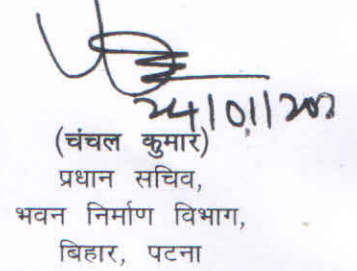 24/01/202
(चंचल कुमार)
प्रधान सचिव,
भवन निर्माण विभाग,
बिहार, पटना